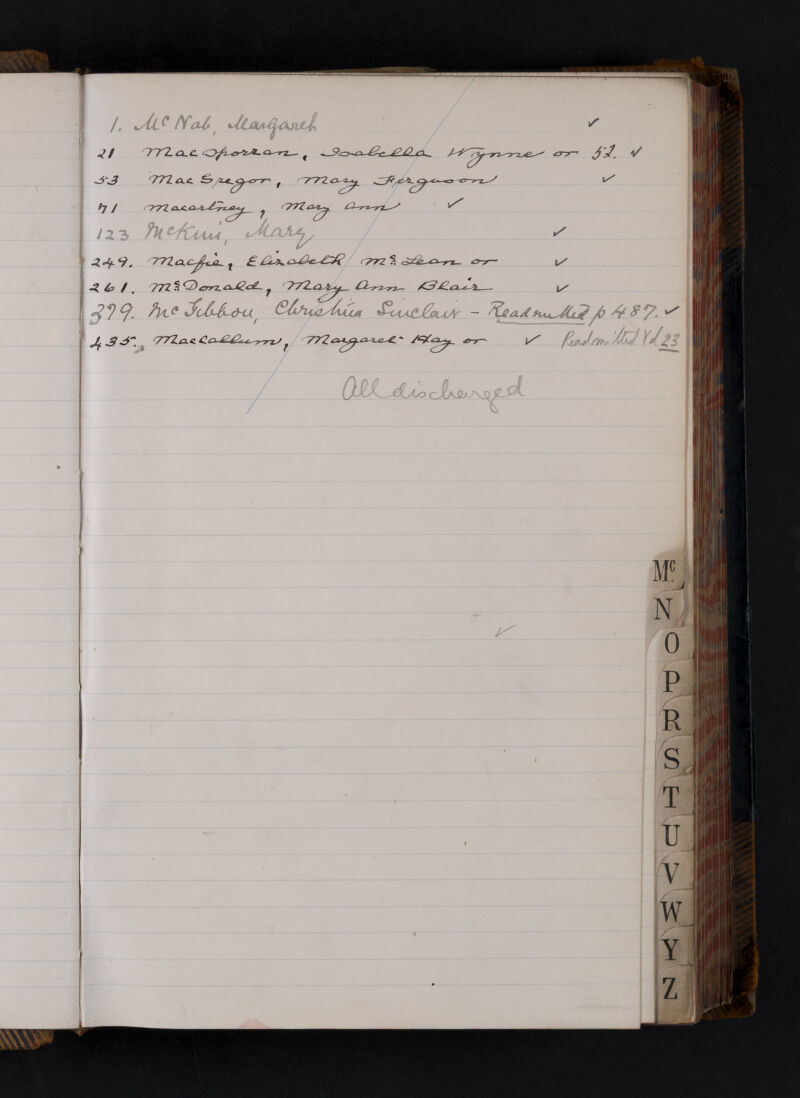 1. Mc Nab, Margaret ✓
21 MacSporran, Isabella Wynne or 52. ✓
53 MacGregor, Mary Ferguson ✓
71 Macartney, Mary Ann ✓
123 McKim, Mary ✓
249. Macfie, Elizabeth Mc Lean or ✓
261. Mc Donald, Mary Ann Blair ✓
379. Mc Gibbon, Christina Sinclair - Readmitted p 487. ✓
435. MacCallum, Margaret Hay or ✓ Readmitted Vol 23
All discharged
✓
Mc.
N
O
P
R
S
T
U
V
W
Y
Z